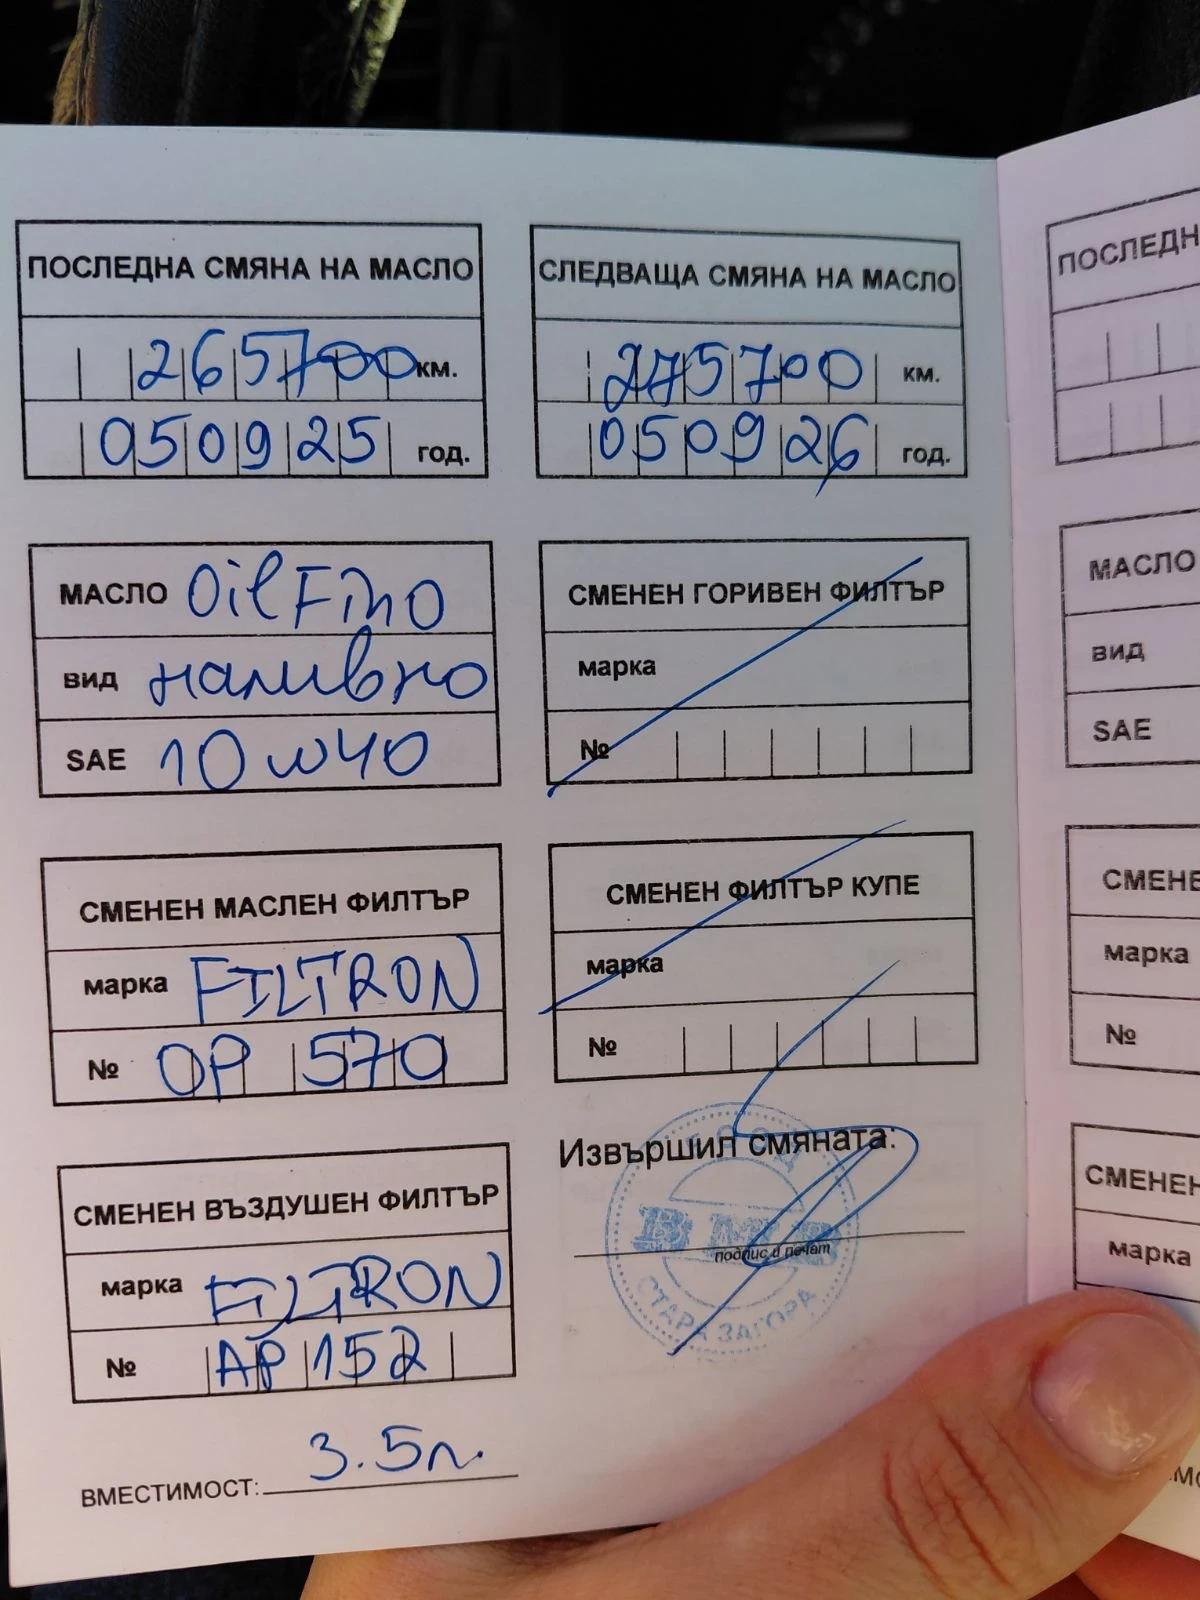 ПОСЛЕДНА СМЯНА НА МАСЛО
265700 км.
050925 год.
СЛЕДВАЩА СМЯНА НА МАСЛО
275700 км.
050926 год.
МАСЛО OilFino
вид наливно
SAE 10w40
СМЕНЕН ГОРИВЕН ФИЛТЪР
марка
№
СМЕНЕН МАСЛЕН ФИЛТЪР
марка FILTRON
№ OP 570
СМЕНЕН ФИЛТЪР КУПЕ
марка
№
СМЕНЕН ВЪЗДУШЕН ФИЛТЪР
марка FILTRON
№ AP 152
ВМЕСТИМОСТ: 3.5л.
Извършил смяната:
подпис и печат
СТАРА ЗАГОРА
ПОСЛЕДН
МАСЛО
вид
SAE
СМЕНЕ
марка
№
СМЕНЕН
марка